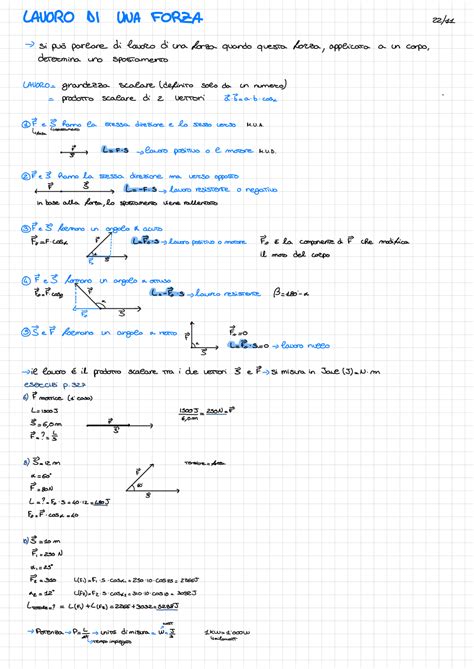 LAVORO DI UNA FORZA 22/11
→ si può parlare di lavoro di una forza quando questa forza, applicata a un corpo,
determina uno spostamento
LAVORO = grandezza scalare (definito solo da un numero)
= prodotto scalare di 2 vettori a·b = a·b·cosα
① F e S hanno la stessa direzione e lo stesso verso M.U.A.
L = F·S → lavoro positivo o L motore M.U.A.
② F e S hanno la stessa direzione ma verso opposto
F S L = -F·S → lavoro resistente o negativo
in base alla forza, lo spostamento viene rallentato
③ F e S formano un angolo α acuto
Fₛ = F·cosα L = Fₛ·S → lavoro positivo o motore Fₛ è la componente di F che modifica
il moto del corpo
④ F e S formano un angolo α ottuso
L = -Fₛ·S → lavoro resistente β = 180-α
⑤ S e F formano un angolo α retto Fₛ = 0
L = Fₛ·S = 0 → lavoro nullo
→ il lavoro è il prodotto scalare tra i due vettori S e F → si misura in Joule (J) = N·m
esercizi p.327
6) F motrice (1 caso)
L = 1500J 1500J / 6,0m = 250N = F
S = 6,0m
F = ? = L/S
8) S = 12m
α = 60°
F = 80N
L = ? = Fₛ·S = 40·12 = 480J
Fₛ = F·cosα = 40
S = 10m
F₁ = 250 N
α₁ = 25°
F₂ = 310 L(F₁) = F₁·S·cosα₁ = 250·10·cos25 = 2266J
α₂ = 12° L(F₂) = F₂·S·cosα₂ = 310·10·cos12 = 3032J
L = ? = L(F₁) + L(F₂) = 2266 + 3032 = 5298J
→ Potenza → P = L/Δt → unità di misura = W = J/s 1KW = 1'000W
tempo impiegato